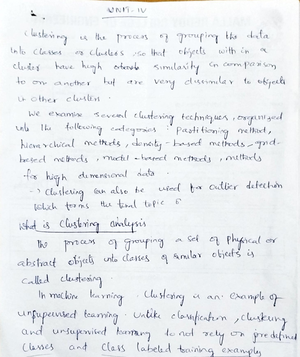 UNIT-IV
Clustering is the process of grouping the data
into classes or clusters, so that objects with in a
cluster have high similarity in comparison
to on another but are very dissimilar to objects
in other clusters.
we examine several clustering techniques, organized
into the following categories: Partitioning method,
hierarchical methods, density-based methods, grid-
based methods, model-based methods, methods
for high dimensional data.
-> Clustering can also be used for outlier detection
which forms the final topic
What is Clustering analysis
The process of grouping a set of physical or
abstract objects into classes of similar objects is
called clustering.
In machine learning, clustering is an example of
unsupervised learning. Unlike classification, clustering
and unsupervised learning to not rely on predefined
classes and class labeled training examples